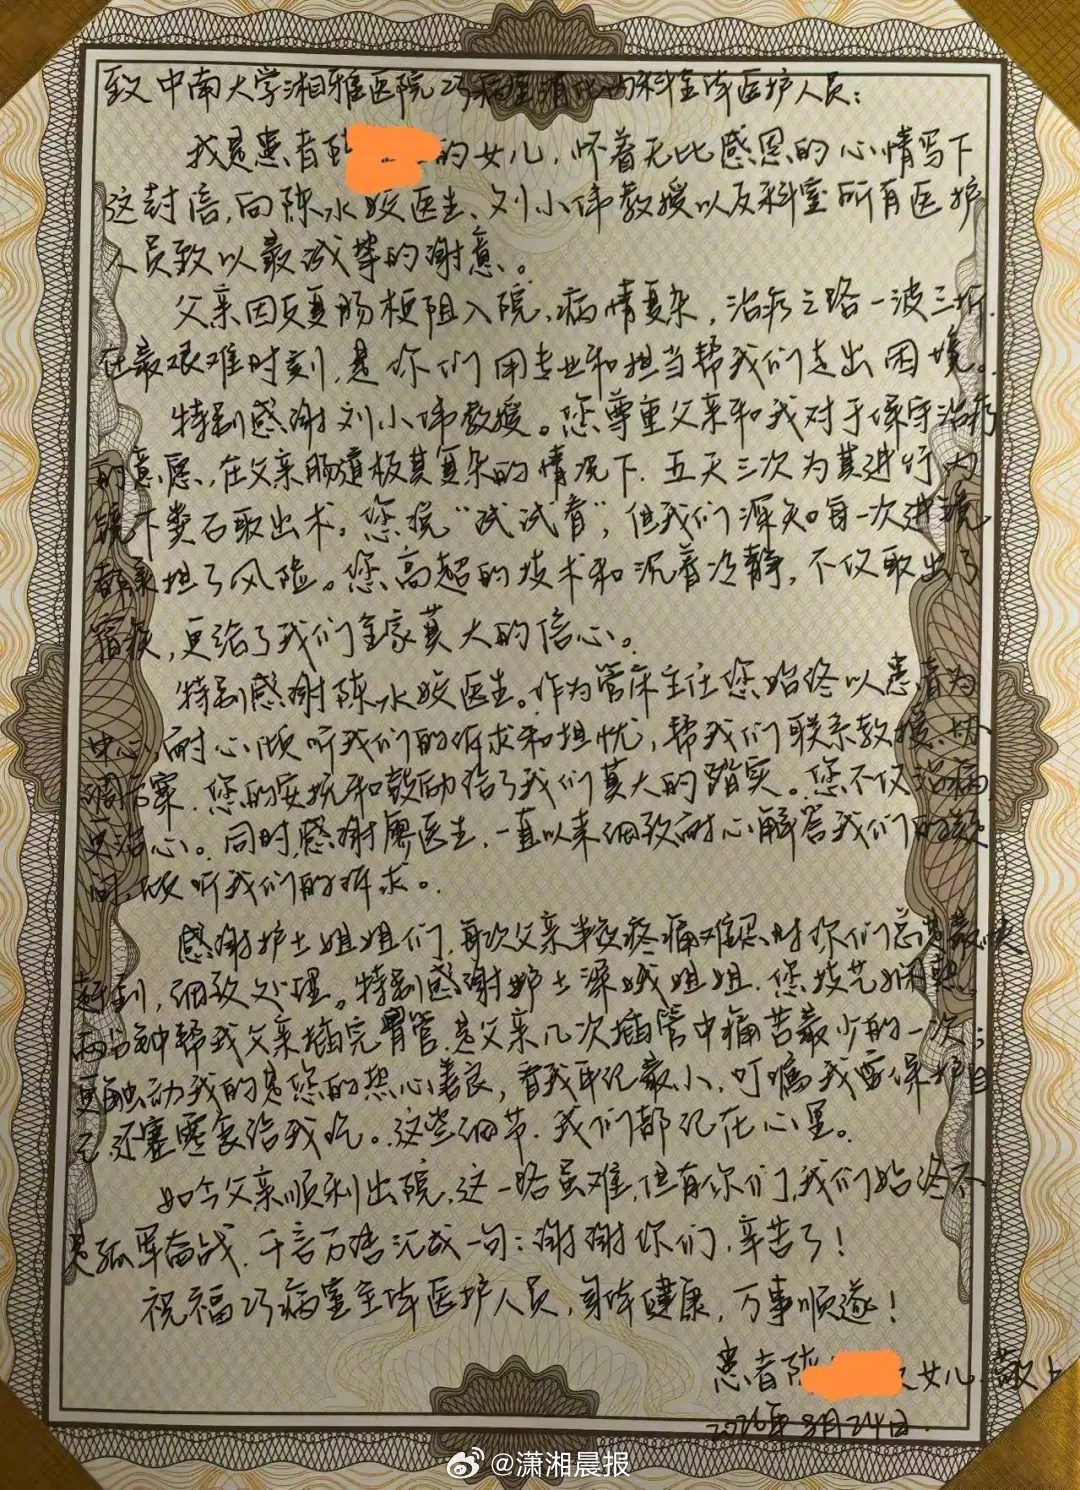 致中南大学湘雅医院23病室消化内科全体医护人员：
我是患者陈 的女儿，怀着无比感恩的心情写下
这封信，向陈水姣医生、刘小伟教授以及科室所有医护
人员致以最诚挚的谢意。
父亲因反复肠梗阻入院，病情复杂，治疗之路一波三折，
在最艰难时刻，是你们用专业和担当帮我们走出困境。
特别感谢刘小伟教授。您尊重父亲和我对于保守治疗
的意愿，在父亲肠道极其复杂的情况下，五天三次为其进行内
镜下粪石取出术。您说“试试看”，但我们深知每一次进镜
都承担了风险。您高超的技术和沉着冷静，不仅取出了
粪石，更给了我们全家莫大的信心。
特别感谢陈水姣医生。作为管床主任您始终以患者为
中心，耐心倾听我们的诉求和担忧，帮我们联系教授、协
调方案，您的安抚和鼓励给了我们莫大的踏实。您不仅治病
更治心。同时，感谢廖医生，一直以来细致耐心解答我们的疑
问，倾听我们的诉求。
感谢护士姐姐们，每次父亲半夜疼痛难忍时你们总是最快
赶到，细致处理。特别感谢护士深娥姐姐，您技艺娴熟，
两分钟帮我父亲插完胃管，是父亲几次插管中痛苦最少的一次；
更触动我的是您的热心善良，看我年纪最小，叮嘱我要保护自
己，还塞零食给我吃。这些细节，我们都记在心里。
如今父亲顺利出院，这一路虽难，但有你们，我们始终不
是孤军奋战，千言万语汇成一句：谢谢你们，辛苦了！
祝福23病室全体医护人员，身体健康，万事顺遂！
患者陈 女儿 敬上
2026年3月24日
@潇湘晨报